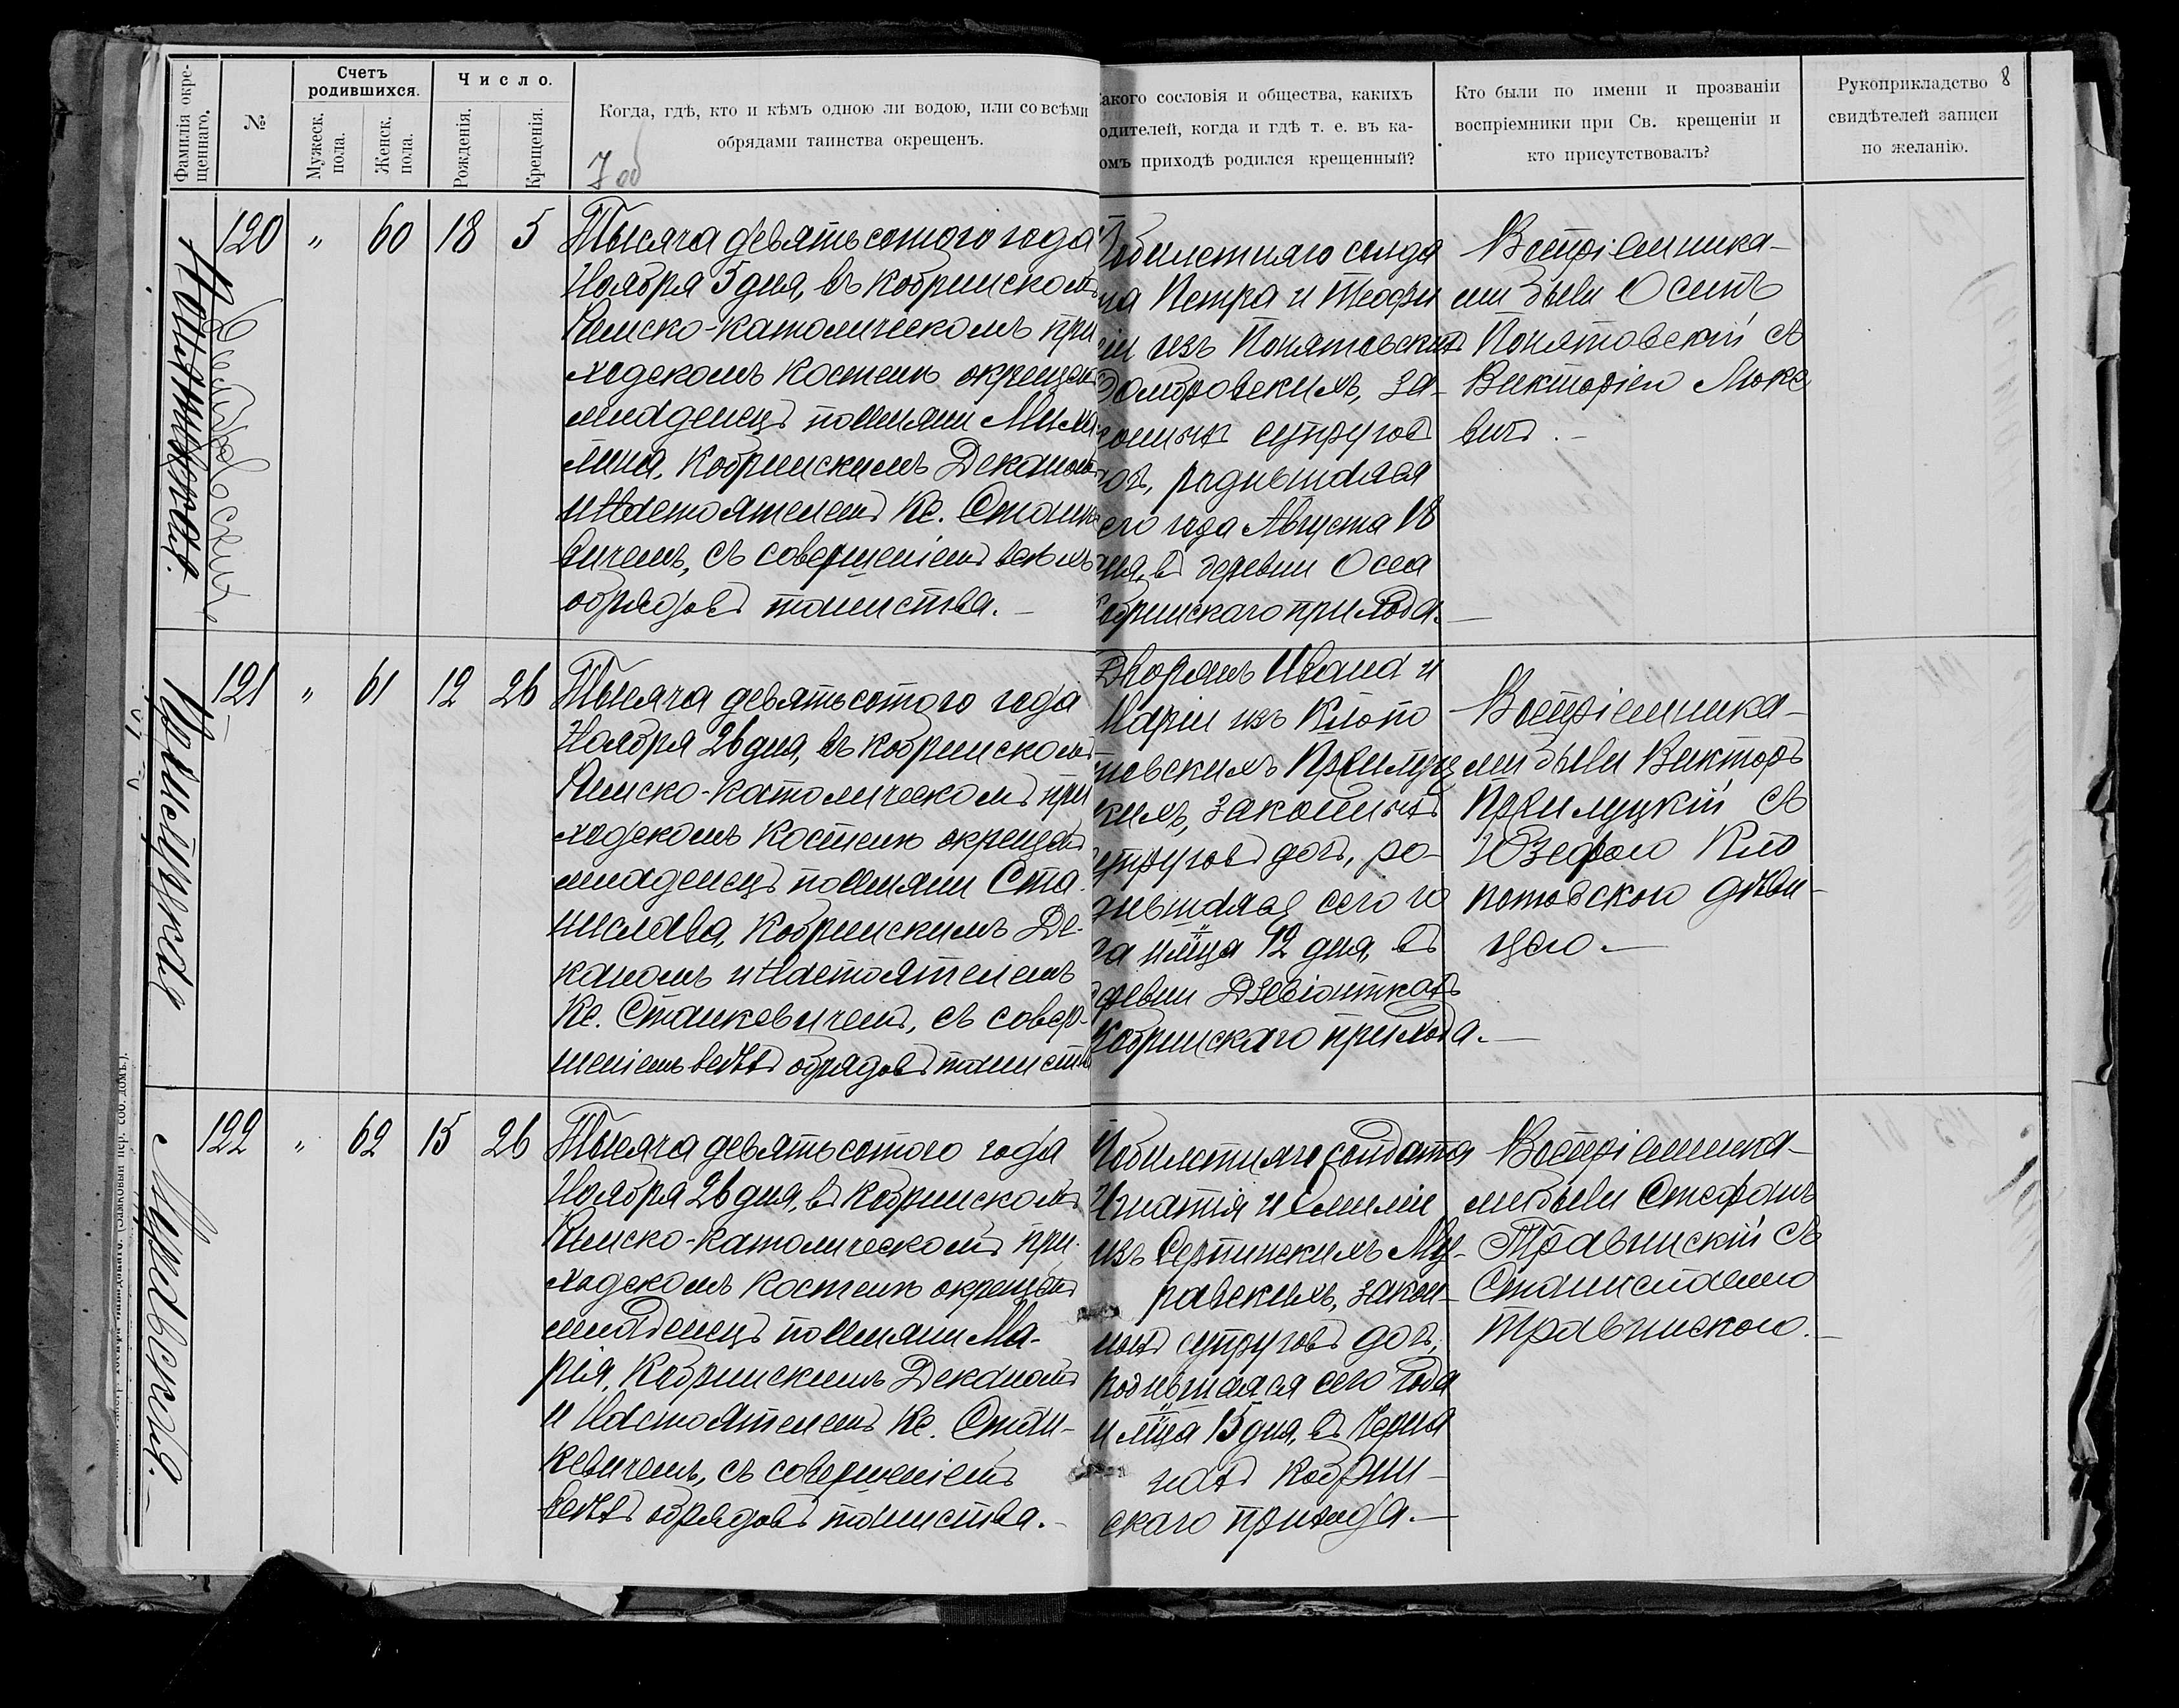 Фамилія окре-
щеннаго.
№
Счетъ
родившихся.
Мужеск.
пола.
Женск.
пола.
Число.
Рожденія.
Крещенія.
Когда, гдѣ, кто и кѣмъ одною ли водою, или со всѣми
обрядами таинства окрещенъ.
акого сословія и общества, какихъ
одителей, когда и гдѣ т. е. въ ка-
омъ приходѣ родился крещенный?
Кто были по имени и прозваніи
воспріемники при Св. крещеніи и
кто присутствовалъ?
Рукоприкладство 8
свидѣтелей записи
по желанію.
Домбровскихъ
120 " 60 18 5
Тысяча девятьсотого года
Ноября 5 дня, въ Кобринскомъ
Римско-католическомъ при
ходскомъ костелѣ окрещенъ
младенецъ по имяни
Кобринскимъ Деканомъ
и Настоятелемъ Кс. Станке
вичемъ, съ совершеніемъ всѣхъ
обрядовъ таинства.–
обилетнаго солда
та Петра и Теофи
ліи изъ Понятовскихъ
Домбровскихъ, за-
конныхъ супруговъ
дочь, родившаяся
сего года Августа 18
дня, въ деревни Осса
обринскаго прихода.–
Воспріемника-
ми были Осипъ
Понятовскій съ
Викторіею
вичъ.–
Прилуцкая
121 " 61 12 26
Тысяча девятьсотого года
Ноября 26 дня, въ Кобринскомъ
Римско-католическомъ при
ходскомъ костелѣ окрещенъ
младенецъ по имяни Ста-
нислава, Кобринскимъ Де-
каномъ и Настоятелемъ
Кс. Станкевичемъ, съ совер-
шеніемъ всѣхъ обрядовъ таинства
Дворянъ Ивана и
Маріи изъ Клопо
товскихъ Прилуц
кихъ, законныхъ
супруговъ дочь, ро-
дившаяся сего го
да и м-ца 12 дня, въ
деревни Дзевіонткахъ
Кобринскаго прихода.–
Воспріемника-
ми были Викторъ
Прилуцкій съ
Юзефою Кло
потовскою дѣви-
цею.–
Муравская.–
122 " 62 15 26
Тысяча девятьсотого года
Ноября 26 дня, въ Кобринскомъ
Римско-католическомъ при-
ходскомъ костелѣ окрещенъ
младенецъ по имяни Ма-
рія, Кобринскимъ Деканомъ
и Настоятелемъ Кс. Стан-
кевичемъ, съ совершеніемъ
всѣхъ обрядовъ таинства.–
обилетнаго солдата
Игнатія и Емиліи
изъ Серпинскихъ Му-
равскихъ, закон-
ныхъ супруговъ дочь,
родившаяся сего года
и м-ца 15 дня, въ
Кобрин-
скаго прихода.–
Воспріемника-
ми были Стефанъ
Травинскій съ
Станиславою
Травинскою.–